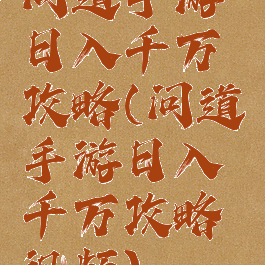 问道手游
日入千万
攻略(问道
手游日入
千万攻略
视频)